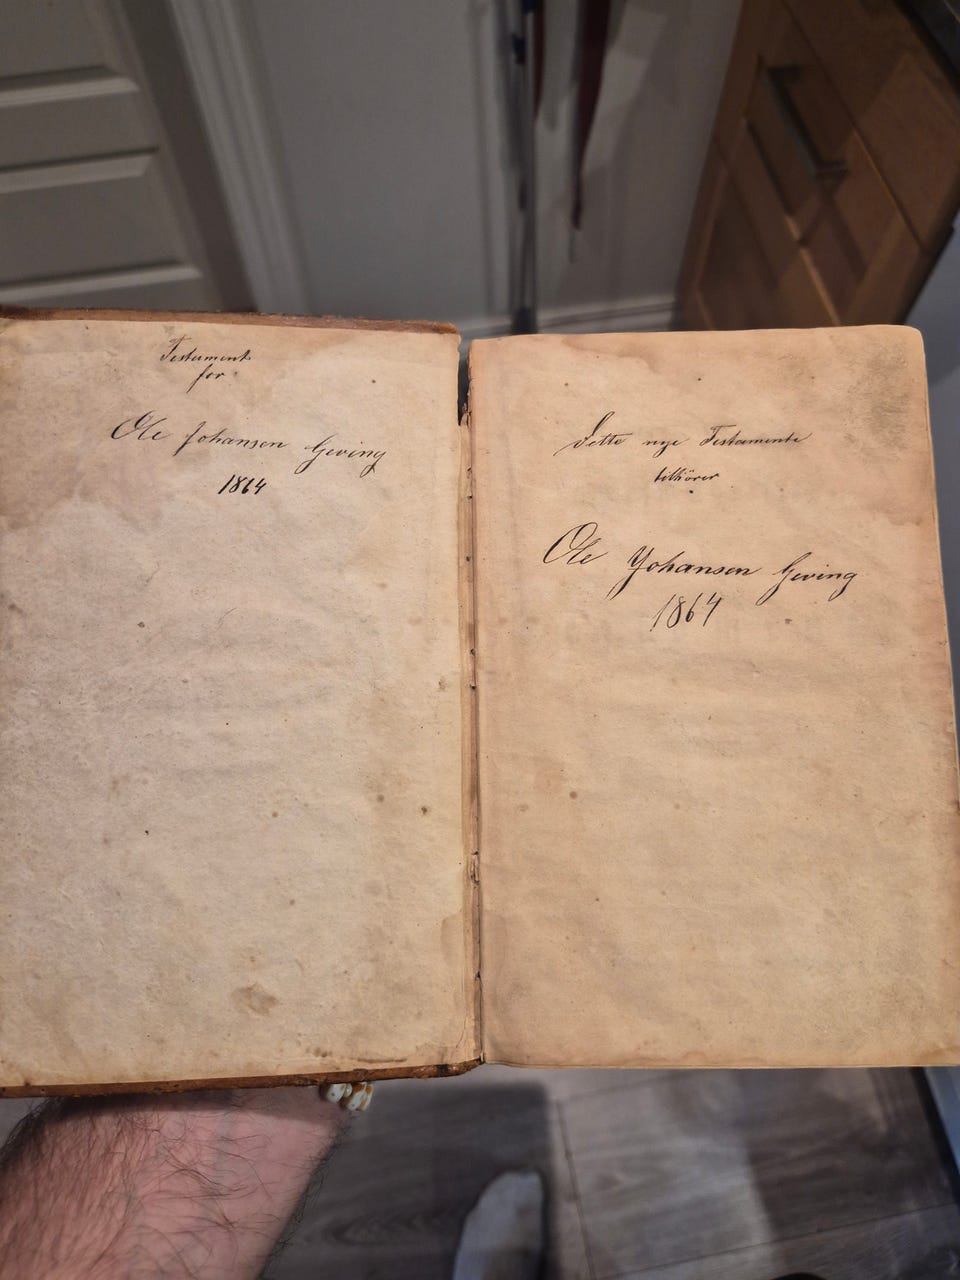 Testament
for
Ole Johansen Geving
1864
Dette nye Testamente
tilhörer
Ole Johansen Geving
1864